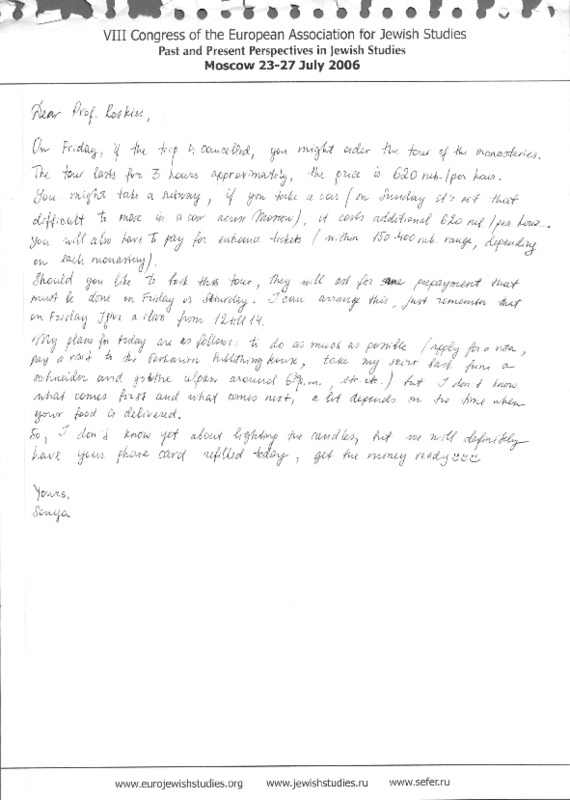 VIII Congress of the European Association for Jewish Studies
Past and Present Perspectives in Jewish Studies
Moscow 23-27 July 2006
Dear Prof. Roskies,
On Friday, if the trip is cancelled, you might order the tour of the monasteries.
The tour lasts for 3 hours approximately, the price is 620 rub./per hour.
You might take a subway, if you take a car (on Sunday it's not that
difficult to move in a car across Moscow), it costs additional 620 rub/per hour.
You will also have to pay for entrance tickets (within 150-400 rub. range, depending
on each monastery).
Should you like to book this tour, they will ask for some prepayment that
must be done on Friday or Saturday. I can arrange this, just remember that
on Friday I give a class from 12 till 14.
My plans for today are as follows: to do as much as possible (apply for a visa,
pay a visit to the Publishing house, take my skirt back from a
schneider and go to the ulpan around 6 p.m., etc. etc.) but I don't know
what comes first and what comes next, a lot depends on the time when
your food is delivered.
So, I don't know yet about lighting the candles, but we will definitely
have your phone card refilled today, get the money ready
Yours,
Sonya
www.eurojewishstudies.org www.jewishstudies.ru www.sefer.ru